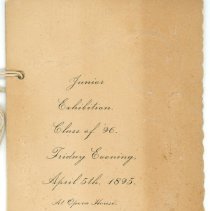 Junior
Exhibition.
Class of '96.
Friday Evening.
April 5th, 1895.
At Opera House.